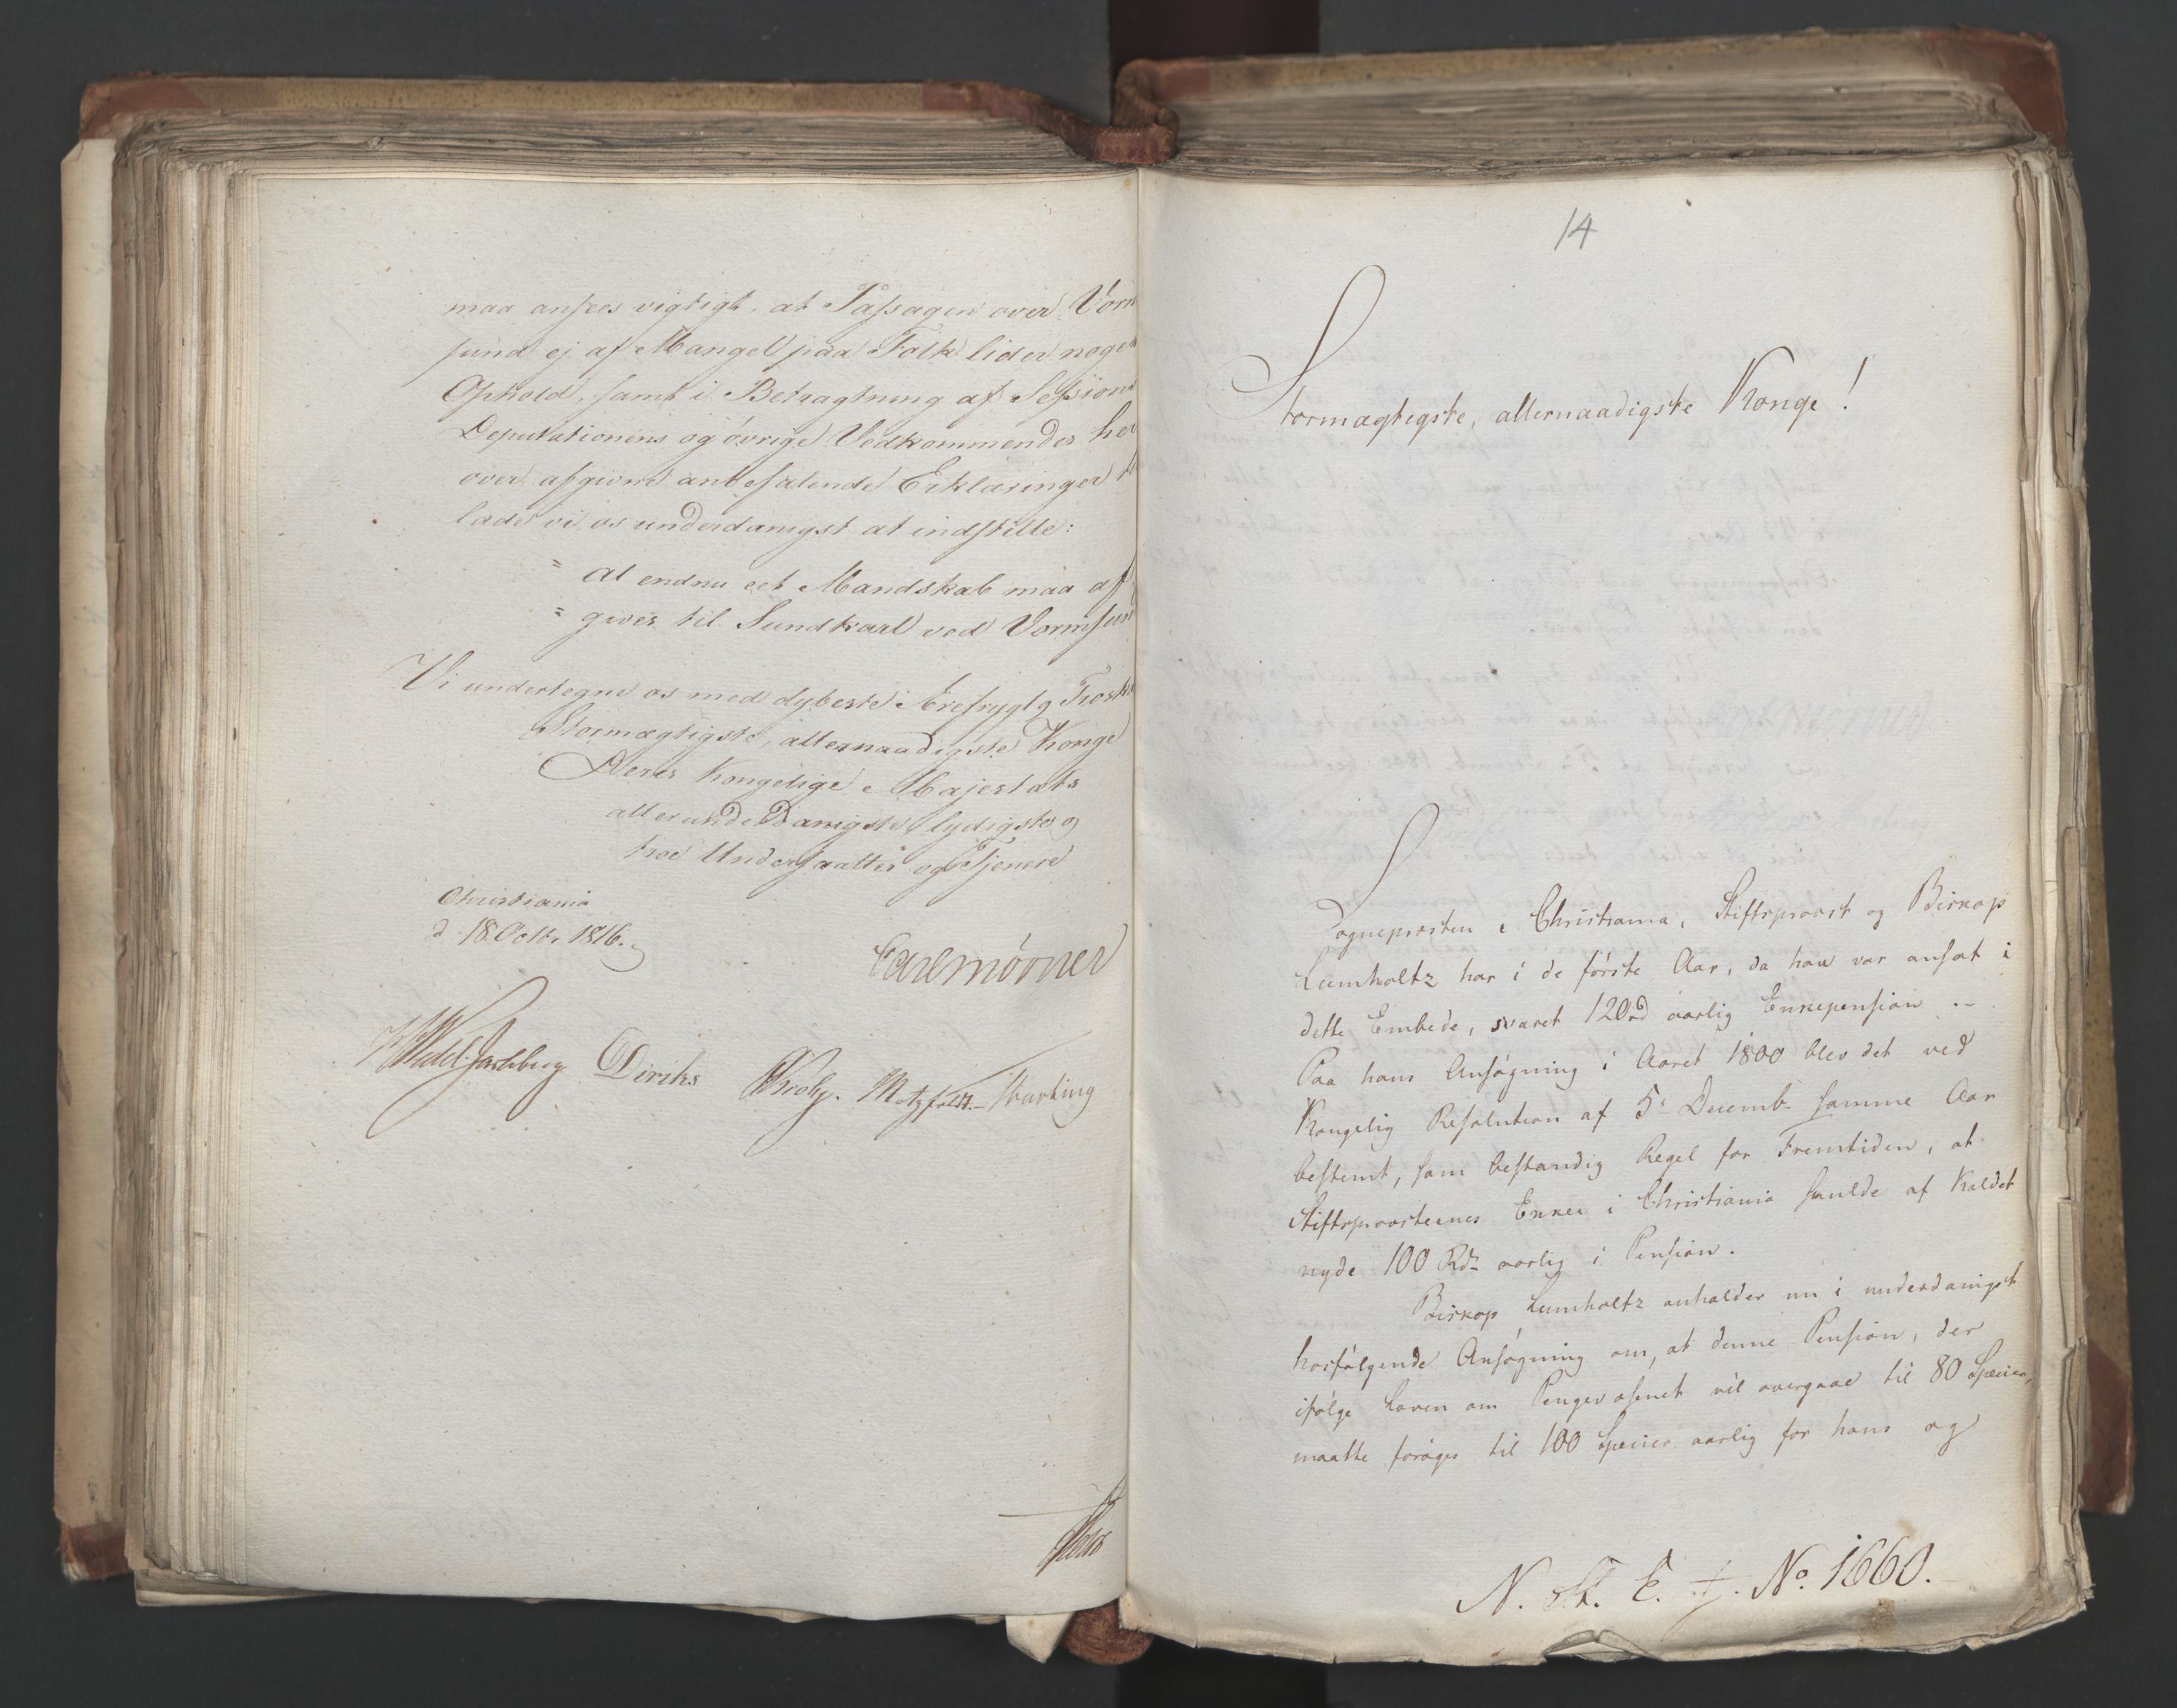 maa ansees vigtigt, at Passagen over Vorm
sund ej af Mangel paa Folk lider noget
Ophold, samt i Betragtning af Sessions
Deputationens og övrige Vedkommendes her
over afgivne anbefalende Erklæringer
lade vi os underdanigst at indstille:
" at endnu eet Mandskab maa af
" gives til Sundkarl ved Vormsun
Vi undertegne os med dybeste Ærefrygt og Trosk
Stormægtigste, allernaadigste Konge
Deres Kongelige Majestæts
allerunderdanigste, lydigste og
troe Undersaatter og Tjenere
Christiania
d 18 Octbr 1816.
Carl Mörner
HWedel-Jarlsberg Diriks Krohg. Motzfeldt. Thurting
14
Stormægtigste, allernaadigste Konge!
Sognepræsten i Christiania, Stiftsprovst og Biskop
Lumholtz har i de förste Aar, da han var ansat i
dette Embede, svaret 120rd aarlig Enkepension. -
Paa hans Ansögning i Aaret 1800 blev det ved
Kongelig Resolution af 5t Decemb. samme Aar
bestemt, som bestandig Regel for Fremtiden, at
Stiftsprovsternes Enker i Christiania skulde af Kaldet
nyde 100 Rdr aarlig i Pension.
Biskop Lumholtz anholder nu i underdanigst
hosfölgende Ansögning om, at denne Pension, der
ifölge Loven om Pengevæsenet vil overgaae til 80 Species,
maatte foröges til 100 Species aarlig for hans og
N. St. E. No. 1660.